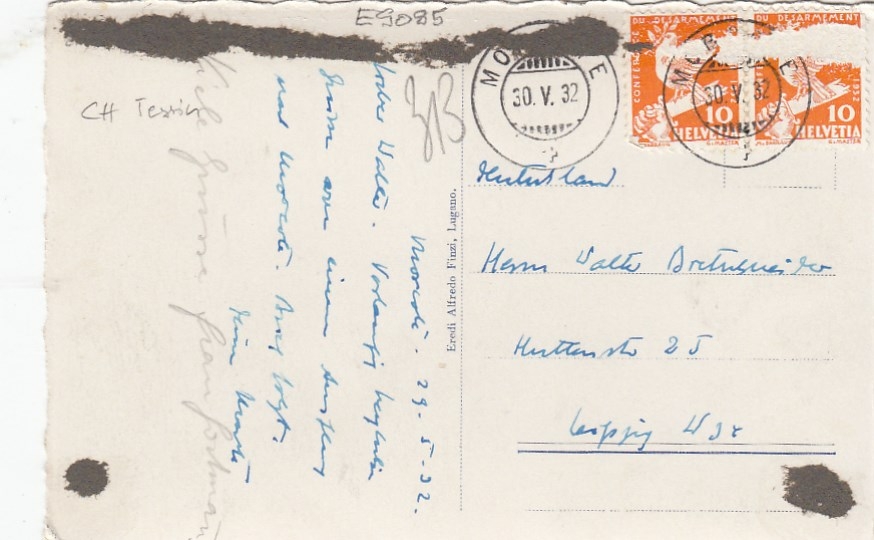 E9085
CH Tessin
Morcote. 29.5.32.
Lieber Walter. Vorläufig herzliche
Grüsse von einem Ausflug
nach Morcote. Brief folgt.
Dein
Viele Grüsse Frau
Eredi Alfredo Finzi, Lugano.
MO E
30.V.32
MOR E
30.V.32
CONFERENCE DU DESARMEMENT 1932
10
HELVETIA
DU DESARMEMENT 1932
10
HELVETIA
Deutschland
Herrn Walter Bretschneider
Huttenstr 25
Leipzig W 32